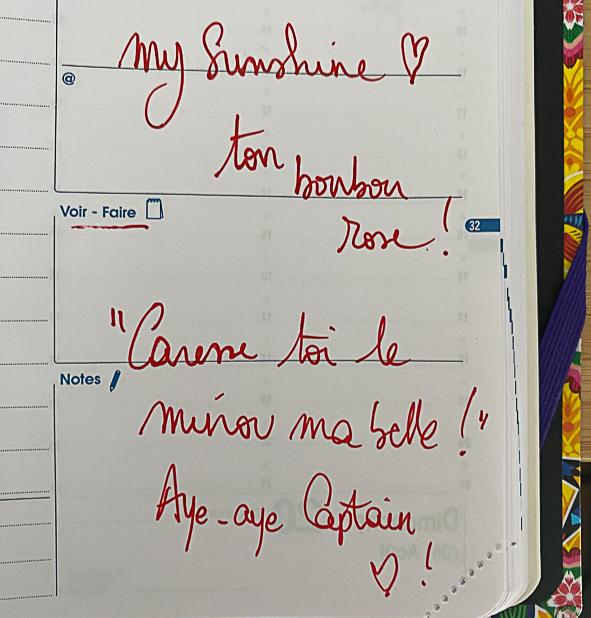 my Sunshine ♡
@
ton bonbon
Voir - Faire
32
rose !
"Caresse toi le
Notes
minou ma belle !"
Aye-aye Captain
♡ !